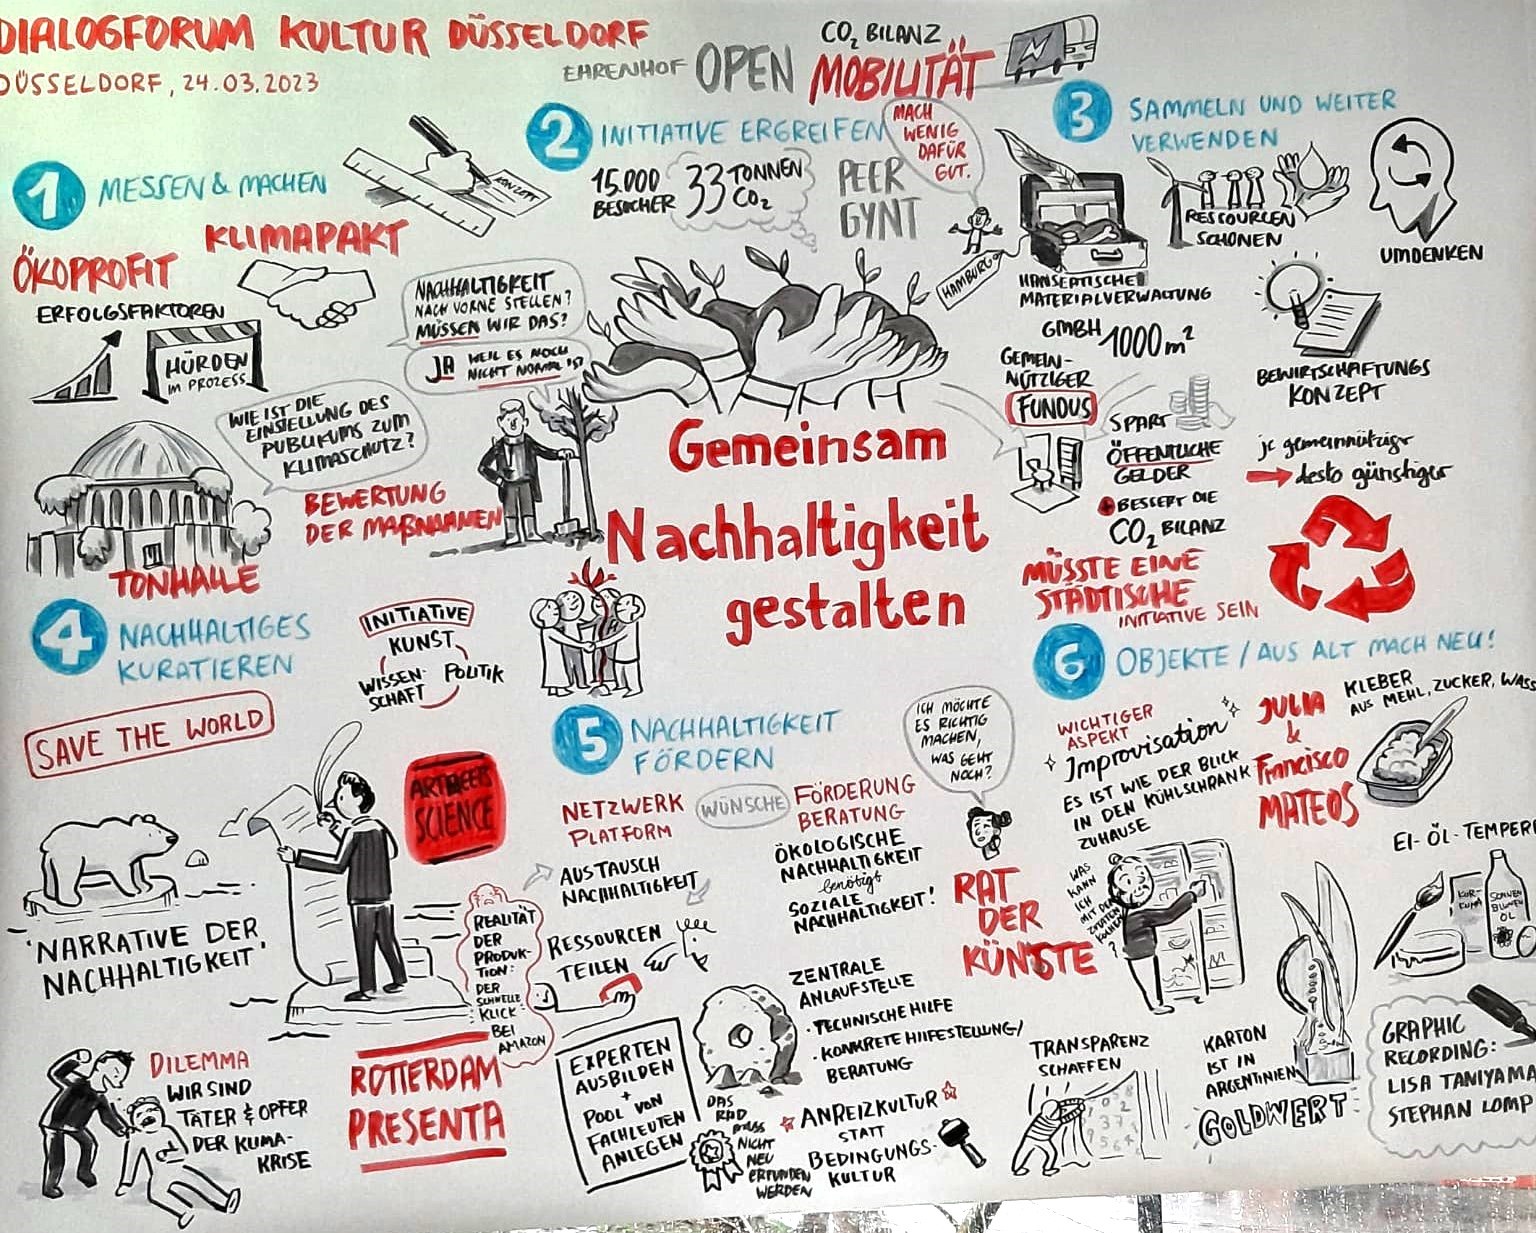 DIALOGFORUM KULTUR DÜSSELDORF
DÜSSELDORF, 24.03.2023
1 MESSEN & MACHEN
KONZEPT
KLIMAPAKT
ÖKOPROFIT
ERFOLGSFAKTOREN
HÜRDEN
IM PROZESS
NACHHALTIGKEIT
NACH VORNE STELLEN?
MÜSSEN WIR DAS?
JA WEIL ES NOCH
NICHT NORMAL IST
WIE IST DIE
EINSTELLUNG DES
PUBLIKUMS ZUM
KLIMASCHUTZ?
BEWERTUNG
DER MAẞNAHMEN
TONHALLE
EHRENHOF OPEN
CO2 BILANZ
MOBILITÄT
2 INITIATIVE ERGREIFEN
15.000
BESUCHER
33 TONNEN
CO2
PEER
GYNT
MACH
WENIG
DAFÜR
GUT.
Gemeinsam
Nachhaltigkeit
gestalten
3 SAMMELN UND WEITER
VERWENDEN
HAMBURG
HANSEATISCHE
MATERIALVERWALTUNG
GMBH 1000m²
RESSOURCEN
SCHONEN
UMDENKEN
GEMEIN-
NÜTZIGER
FUNDUS
SPART
ÖFFENTLICHE
GELDER
+ BESSERT DIE
CO2 BILANZ
BEWIRTSCHAFTUNGS
KONZEPT
je gemeinnütziger
desto günstiger
MÜSSTE EINE
STÄDTISCHE
INITIATIVE SEIN
4 NACHHALTIGES
KURATIEREN
INITIATIVE
KUNST
WISSEN-
SCHAFT
POLITIK
SAVE THE WORLD
ART MEETS
SCIENCE
'NARRATIVE DER
NACHHALTIGKEIT'
REALITÄT
DER
PRODUK-
TION:
DER
SCHNELLE
KLICK
BEI
AMAZON
DILEMMA
WIR SIND
TÄTER & OPFER
DER KLIMA-
KRISE
ROTTERDAM
PRESENTA
5 NACHHALTIGKEIT
FÖRDERN
NETZWERK
PLATFORM
WÜNSCHE
FÖRDERUNG
BERATUNG
AUSTAUSCH
NACHHALTIGKEIT
ÖKOLOGISCHE
NACHHALTIGKEIT
benötigt
SOZIALE
NACHHALTIGKEIT!
RESSOURCEN
TEILEN
EXPERTEN
AUSBILDEN
+
POOL VON
FACHLEUTEN
ANLEGEN
DAS
RAD
MUSS
NICHT
NEU
ERFUNDEN
WERDEN
ZENTRALE
ANLAUFSTELLE
· TECHNISCHE HILFE
· KONKRETE HILFESTELLUNG/
BERATUNG
ANREIZKULTUR
STATT
BEDINGUNGS-
KULTUR
ICH MÖCHTE
ES RICHTIG
MACHEN,
WAS GEHT
NOCH?
RAT
DER
KÜNSTE
6 OBJEKTE / AUS ALT MACH NEU!
WICHTIGER
ASPEKT
Improvisation
ES IST WIE DER BLICK
IN DEN KÜHLSCHRANK
ZUHAUSE
WAS
KANN
ICH
MIT DEN
ZUTATEN
KOCHEN
?
JULIA
&
Francisco
MATEOS
KLEBER
AUS MEHL, ZUCKER, WASS
EI-ÖL-TEMPER
KUR-
KUMA
SONNEN
BLUMEN
ÖL
TRANSPARENZ
SCHAFFEN
KARTON
IST IN
ARGENTINIEN
GOLDWERT
GRAPHIC
RECORDING:
LISA TANIYAMA
STEPHAN LOMP